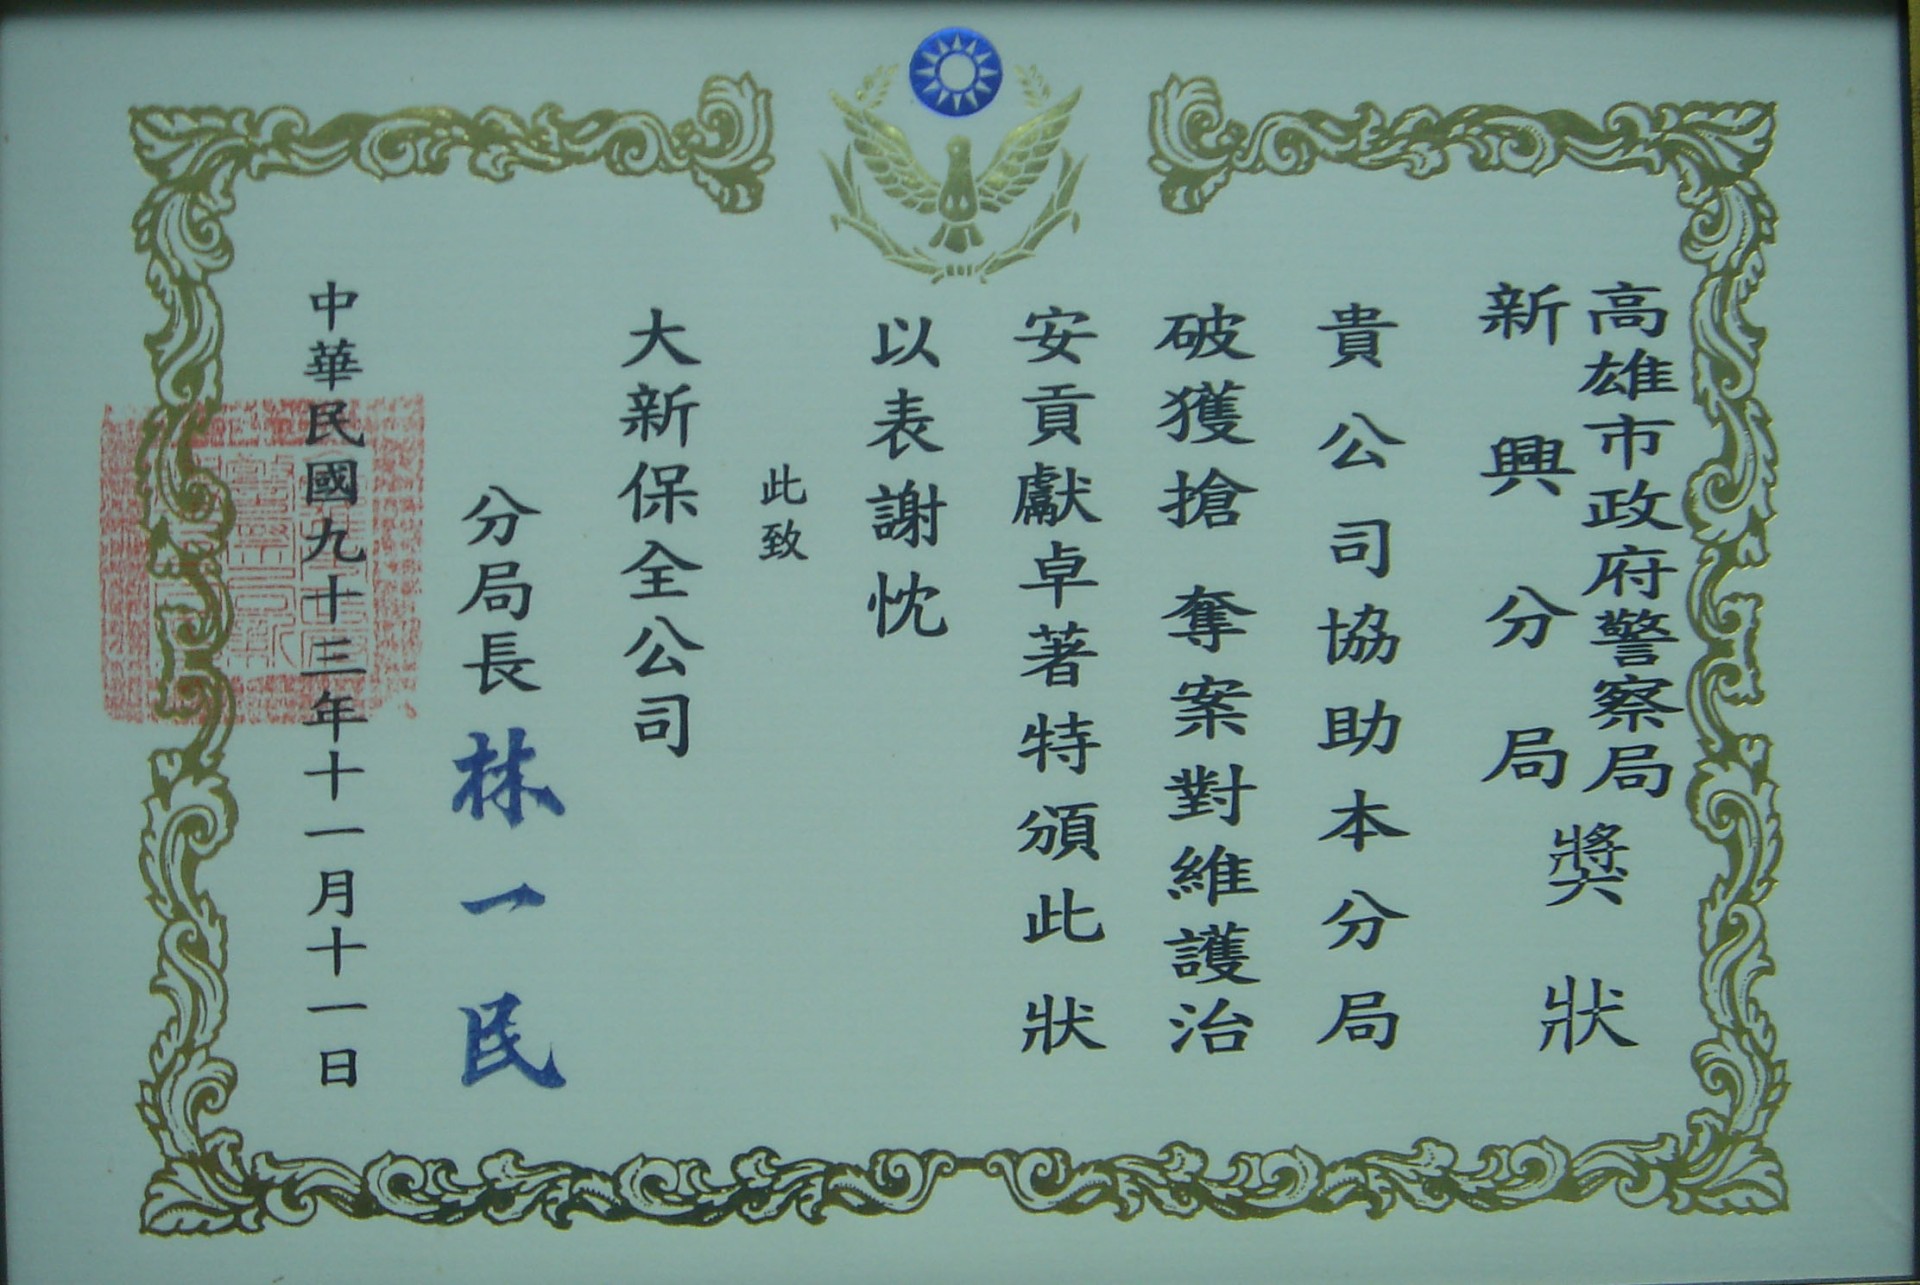 高雄市政府警察局
新興分局
獎狀
貴公司協助本分局
破獲搶奪案對維護治
安貢獻卓著特頒此狀
以表謝忱
此致
大新保全公司
分局長林一民
中華民國九十三年十一月十一日